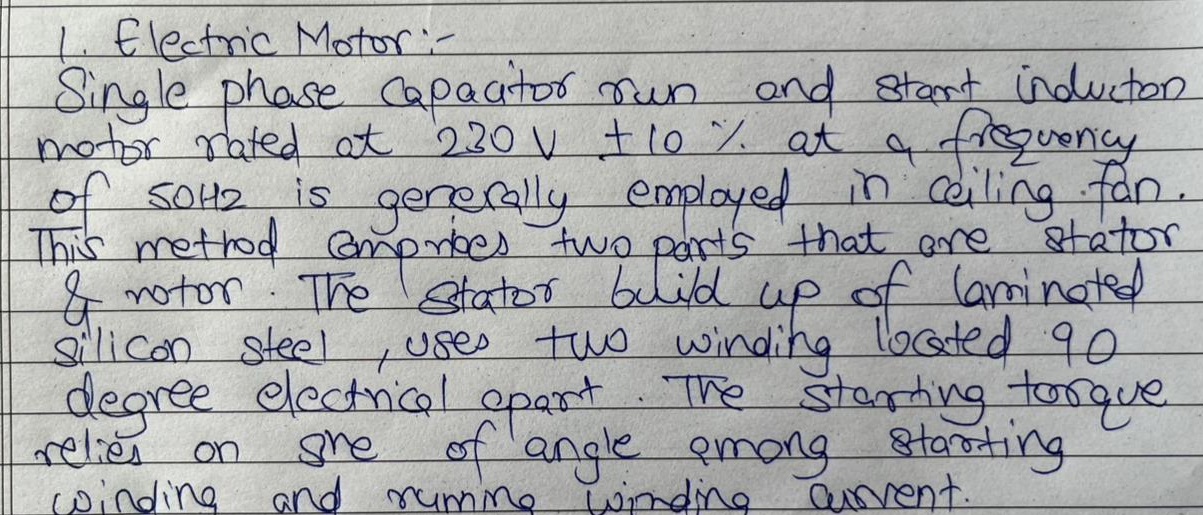 1. Electric Motor :-
Single phase capacitor run and start inducton
motor rated at 230 V ±10 % at a frequency
of 50Hz is generally employed in ceiling fan.
This method comprises two parts that are stator
& rotor. The stator build up of laminated
silicon steel, uses two winding located 90
degree electrical apart. The starting torque
relies on sine of angle among starting
winding and running winding current.